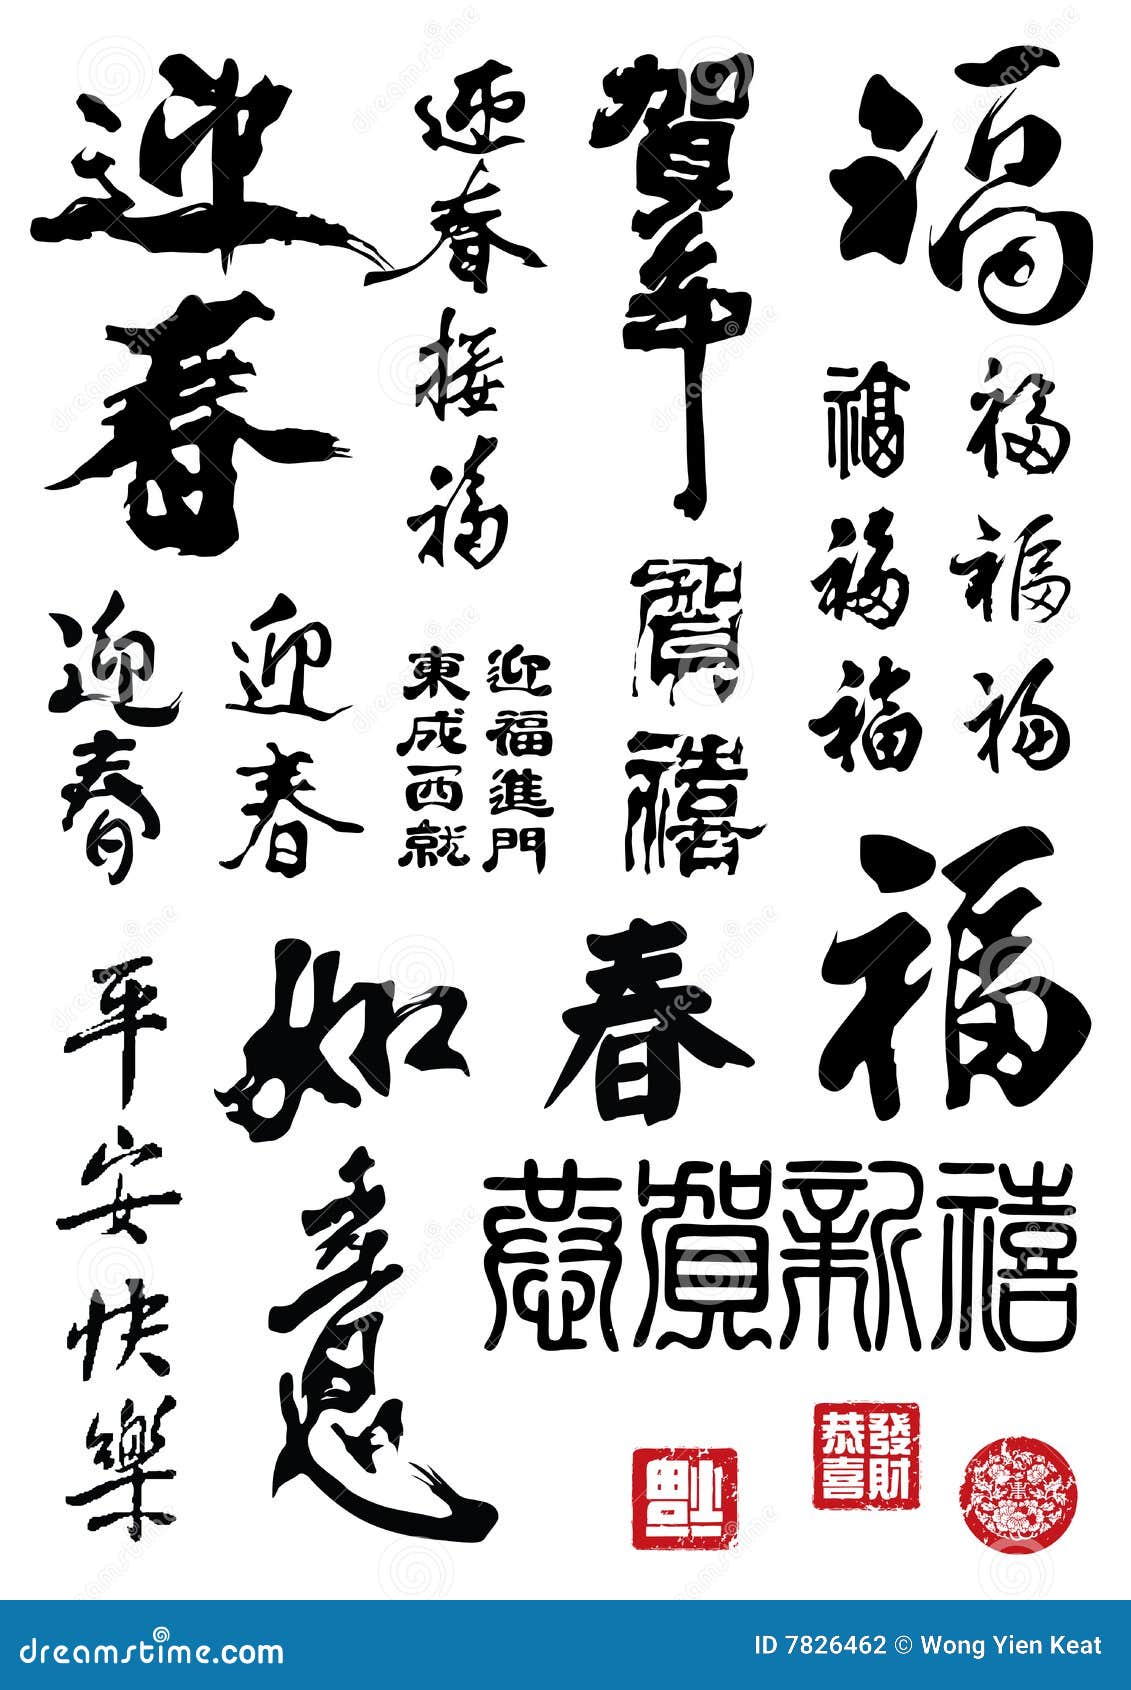 迎春
迎春接福
賀年
福
福
福
福
福
福
福
迎春
迎春
迎福進門
東成西就
賀禧
福
春
如意
平安快樂
恭賀新禧
福
恭喜
發財
dreamstime.com
ID 7826462 © Wong Yien Keat